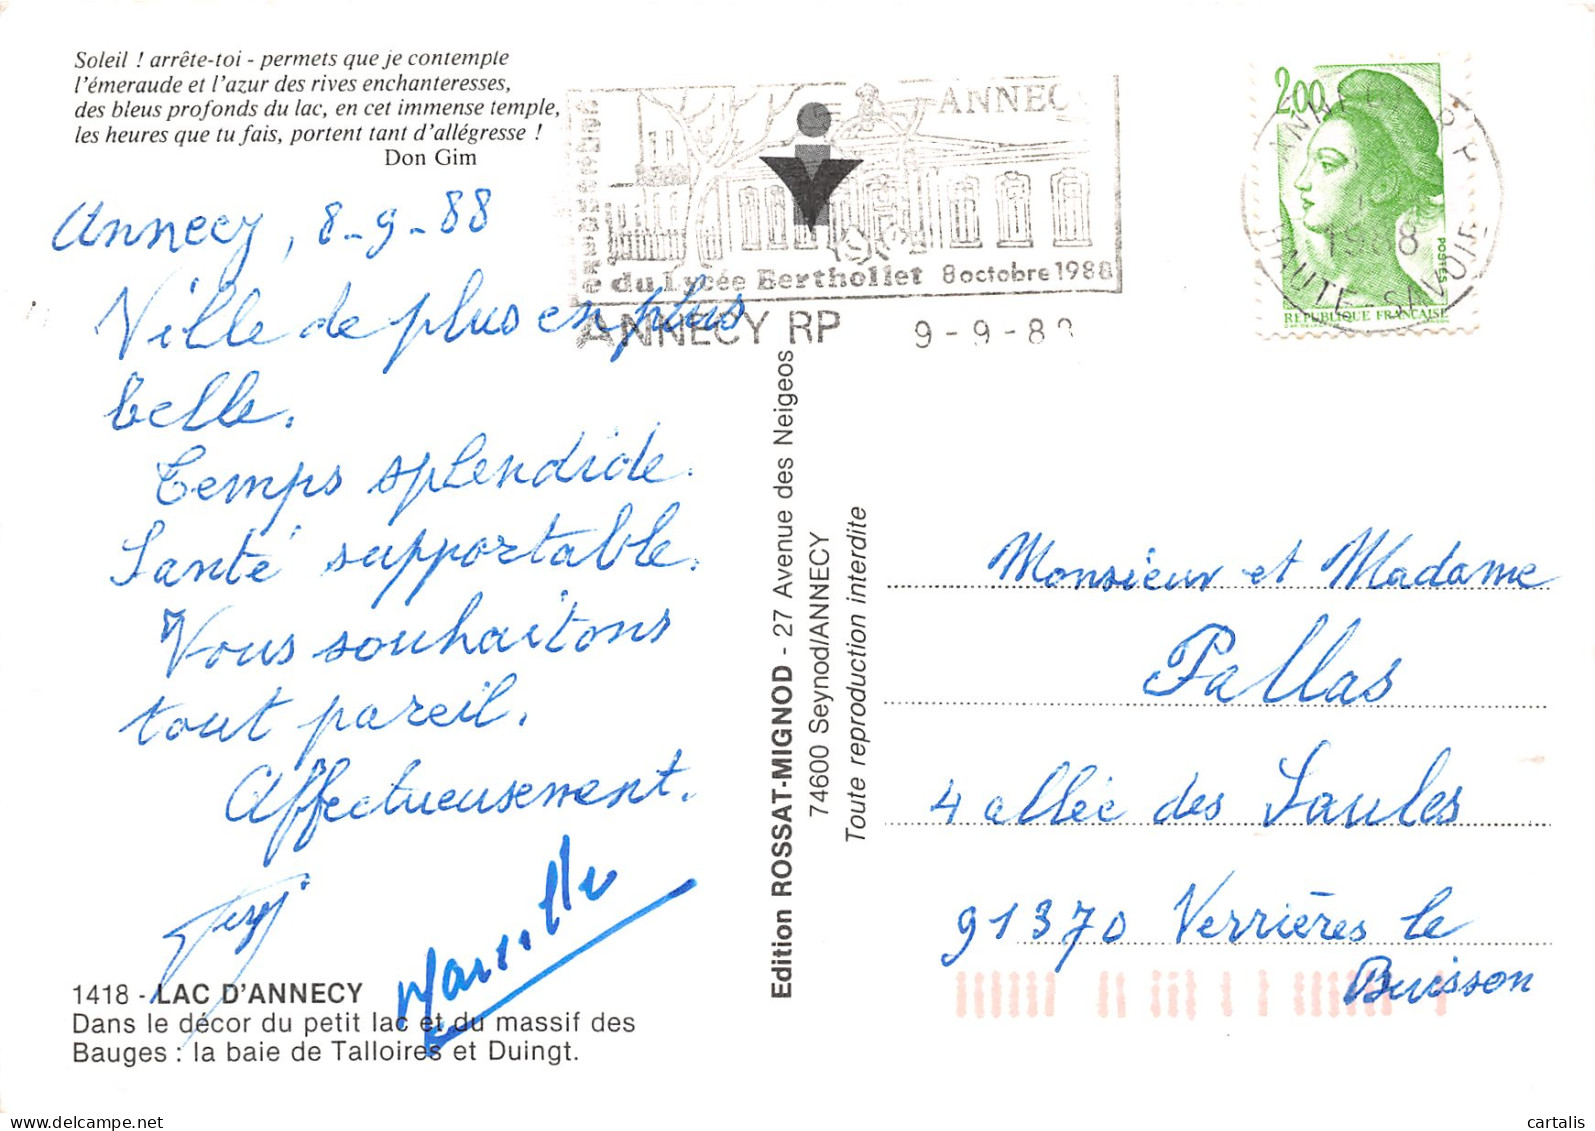 Soleil ! arrête-toi - permets que je contemple
l'émeraude et l'azur des rives enchanteresses,
des bleus profonds du lac, en cet immense temple,
les heures que tu fais, portent tant d'allégresse !
Don Gim
Annecy, 8-9-88
Ville de plus en plus
belle.
Temps splendide.
Santé supportable.
Vous souhaitons
tout pareil.
Affectueusement.
Marcelle
1418 - LAC D'ANNECY
Dans le décor du petit lac et du massif des
Bauges : la baie de Talloires et Duingt.
ANNECY
du Lycée Berthollet 8 octobre 1988
ANNECY RP 9-9-88
2,00
POSTES
RÉPUBLIQUE FRANÇAISE
ANNECY R.P.
1988
HAUTE-SAVOIE
Edition ROSSAT-MIGNOD - 27 Avenue des Neigeos
74600 Seynod/ANNECY
Toute reproduction interdite
Monsieur et Madame
Pallas
4 allée des Saules
91370 Verrières le
Buisson
cartalis